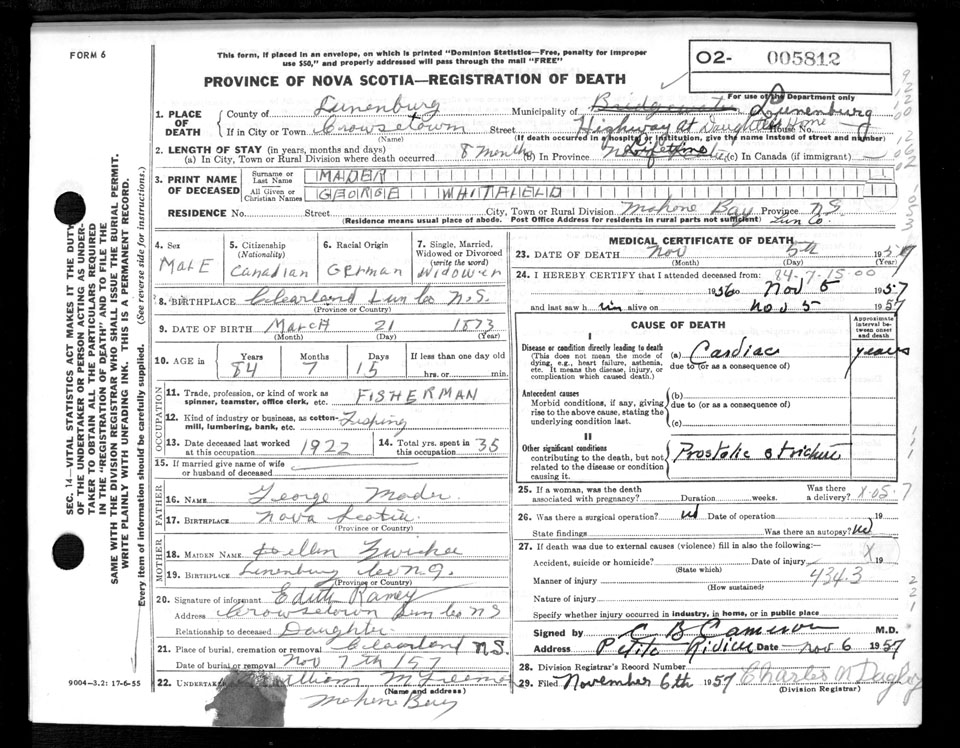 FORM 6
This form, if placed in an envelope, on which is printed "Dominion Statistics—Free, penalty for improper
use $50," and properly addressed will pass through the mail "FREE"
O2- 005812
PROVINCE OF NOVA SCOTIA—REGISTRATION OF DEATH
For use of the Department only
1. PLACE OF DEATH County of Lunenburg Municipality of Bridgewater Lunenburg
If in City or Town Crousetown Street Highway at Daughters Home House No.
(Name) (If death occurred in a hospital or institution, give the name instead of street and number)
2. LENGTH OF STAY (in years, months and days)
(a) In City, Town or Rural Division where death occurred 8 months (b) In Province Lifetime (c) In Canada (if immigrant)
3. PRINT NAME OF DECEASED Surname or Last Name MADER
All Given or Christian Names GEORGE WHITFIELD
RESIDENCE No. Street City, Town or Rural Division Mahone Bay Province N.S.
(Residence means usual place of abode. Post Office Address for residents in rural parts not sufficient) Lun Co.
4. Sex MALE
5. Citizenship (Nationality) Canadian
6. Racial Origin German
7. Single, Married, Widowed or Divorced (write the word) Widower
8. BIRTHPLACE Clearland Lun Co N.S.
(Province or Country)
9. DATE OF BIRTH March 21 1873
(Month) (Day) (Year)
10. AGE in Years Months Days If less than one day old
84 7 15 hrs. or min.
OCCUPATION
11. Trade, profession, or kind of work as spinner, teamster, office clerk, etc. FISHERMAN
12. Kind of industry or business, as cotton-mill, lumbering, bank, etc. Fishing
13. Date deceased last worked at this occupation 1922
14. Total yrs. spent in this occupation 35
15. If married give name of wife or husband of deceased
FATHER
16. NAME George Mader
17. BIRTHPLACE Nova Scotia
(Province or Country)
MOTHER
18. MAIDEN NAME Ellen Zwicker
19. BIRTHPLACE Lunenburg Co N.S.
(Province or Country)
20. Signature of informant Edith Ramey
Address Crousetown Lun Co NS
Relationship to deceased Daughter
21. Place of burial, cremation or removal Clearland N.S.
Date of burial or removal Nov 7th 157
22. UNDERTAKER William M
(Name and address)
Mahone Bay
MEDICAL CERTIFICATE OF DEATH
23. DATE OF DEATH Nov 5th 1957
(Month) (Day) (Year)
24. I HEREBY CERTIFY that I attended deceased from: 24-7-15-00
1956 to Nov 5 1957
and last saw him alive on Nov 5 1957
CAUSE OF DEATH
Approximate interval between onset and death
I
Disease or condition directly leading to death
(This does not mean the mode of dying, e.g., heart failure, asthenia, etc. It means the disease, injury, or complication which caused death.)
(a) Cardiac years
due to (or as a consequence of)
Antecedent causes
Morbid conditions, if any, giving rise to the above cause, stating the underlying condition last.
(b)
due to (or as a consequence of)
(c)
II
Other significant conditions
contributing to the death, but not related to the disease or condition causing it.
Prostatic stricture
25. If a woman, was the death associated with pregnancy? Duration weeks. Was there a delivery? X-05-7
26. Was there a surgical operation? no Date of operation 19
State findings Was there an autopsy? no
27. If death was due to external causes (violence) fill in also the following:—
Accident, suicide or homicide? Date of injury X 19
(State which)
434.3
Manner of injury
(How sustained)
Nature of injury
Specify whether injury occurred in industry, in home, or in public place
Signed by C B Cameron M.D.
Address Petite Riviere Date Nov 6 1957
28. Division Registrar's Record Number
29. Filed November 6th 1957 Charles N
(Division Registrar)
9004—3.2: 17-6-55
SEC. 14—VITAL STATISTICS ACT MAKES IT THE DUTY
OF THE UNDERTAKER OR PERSON ACTING AS UNDER-
TAKER TO OBTAIN ALL THE PARTICULARS REQUIRED
IN THE "REGISTRATION OF DEATH" AND TO FILE THE
SAME WITH THE DIVISION REGISTRAR WHO SHALL ISSUE THE BURIAL PERMIT.
WRITE PLAINLY WITH UNFADING INK. THIS IS A PERMANENT RECORD.
Every item of information should be carefully supplied. (See reverse side for instructions.)